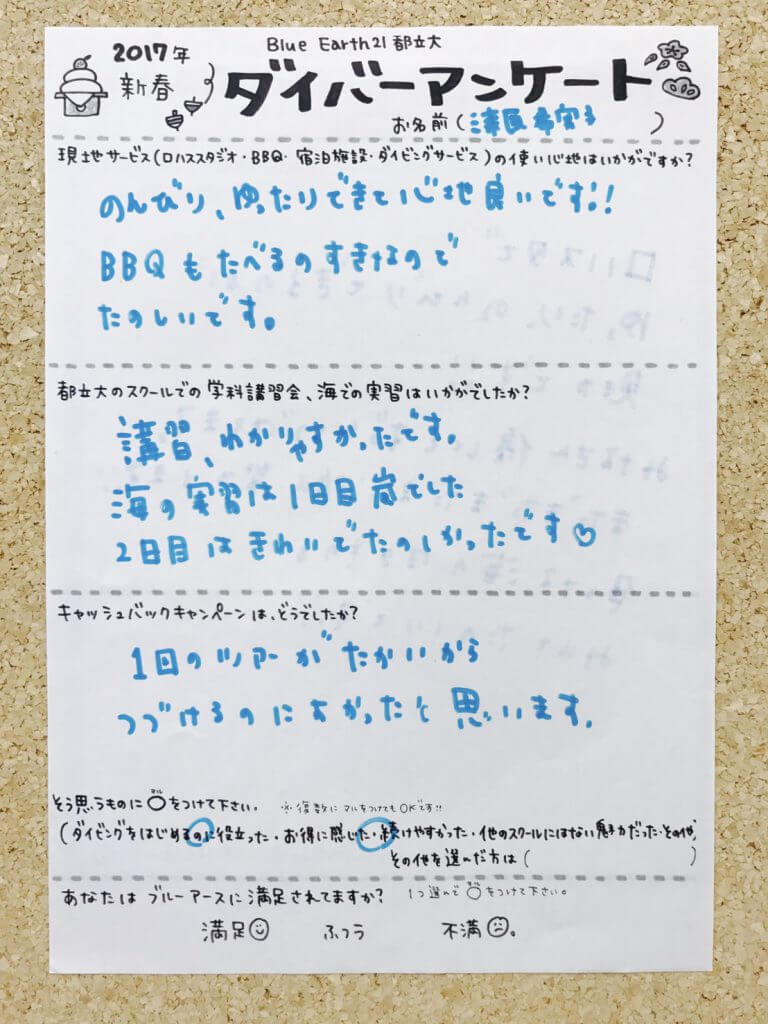 2017年
新春
Blue Earth21 都立大
ダイバーアンケート
お名前(津原 希実子)
現地サービス(ロハススタジオ・BBQ・宿泊施設・ダイビングサービス)の使い心地はいかがですか?
のんびり、ゆったりできて心地良いです!!
BBQもたべるのすきなので
たのしいです。
都立大のスクールでの学科講習会、海での実習はいかがでしたか?
講習、わかりやすかったです。
海の実習は1日目嵐でした
2日目はきれいでたのしかったです♡
キャッシュバックキャンペーンは、どうでしたか?
1回のツアーがたかいから
つづけるのによかったと思います。
そう思うものに○をつけて下さい。 ※複数にマルをつけてもOKです!!
(ダイビングをはじめるのに役立った・お得に感じた・続けやすかった・他のスクールにはない魅力だった・その他)
その他を選んだ方は( )
あなたはブルーアースに満足されてますか? 1つ選んで○をつけて下さい。
満足 ふつう 不満。